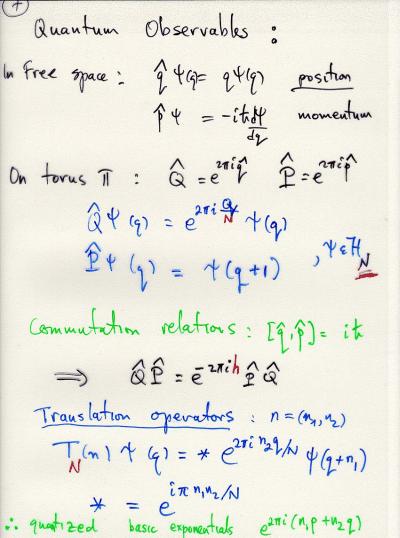 7
Quantum Observables :
In free space : q̂ ψ(q) = qψ(q) position
p̂ ψ = -iħ dψ/dq momentum
On torus 𝕋 : Q̂ = e^{2πiq̂} P̂ = e^{2πip̂}
Q̂ψ(q) = e^{2πi Q/N} ψ(q)
P̂ψ(q) = ψ(q+1) , ψ∈ℋ_N
Commutation relations : [q̂,p̂] = iħ
⟹ Q̂P̂ = e^{-2πih} P̂Q̂
Translation operators : n = (n₁,n₂)
T_N(n) ψ(q) = * e^{2πi n₂q/N} ψ(q+n₁)
* = e^{iπ n₁n₂/N}
∴ quantized basic exponentials e^{2πi(n₁p+n₂q)}